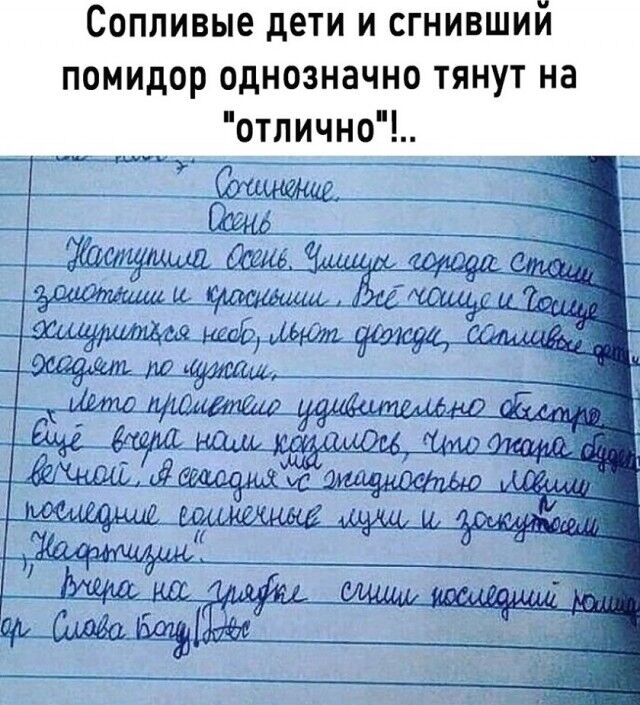 Сопливые дети и сгнивший
помидор однозначно тянут на
"отлично"!..
Сочинение.
Осень
Наступила Осень. Улицы города стали
золотыми и красными. Всё чаще и чаще
хмуриться небо, льют дожди, сопливые дети
ходят по лужам.
Лето пролетело удивительно быстро.
Ещё вчера нам казалось, что жара будет
вечной. А сегодня мы с жадностью ловим
последние солнечные лучи и
„Нафтизин".
Вчера на грядке сгнил последний помид
ор Слава Богу!